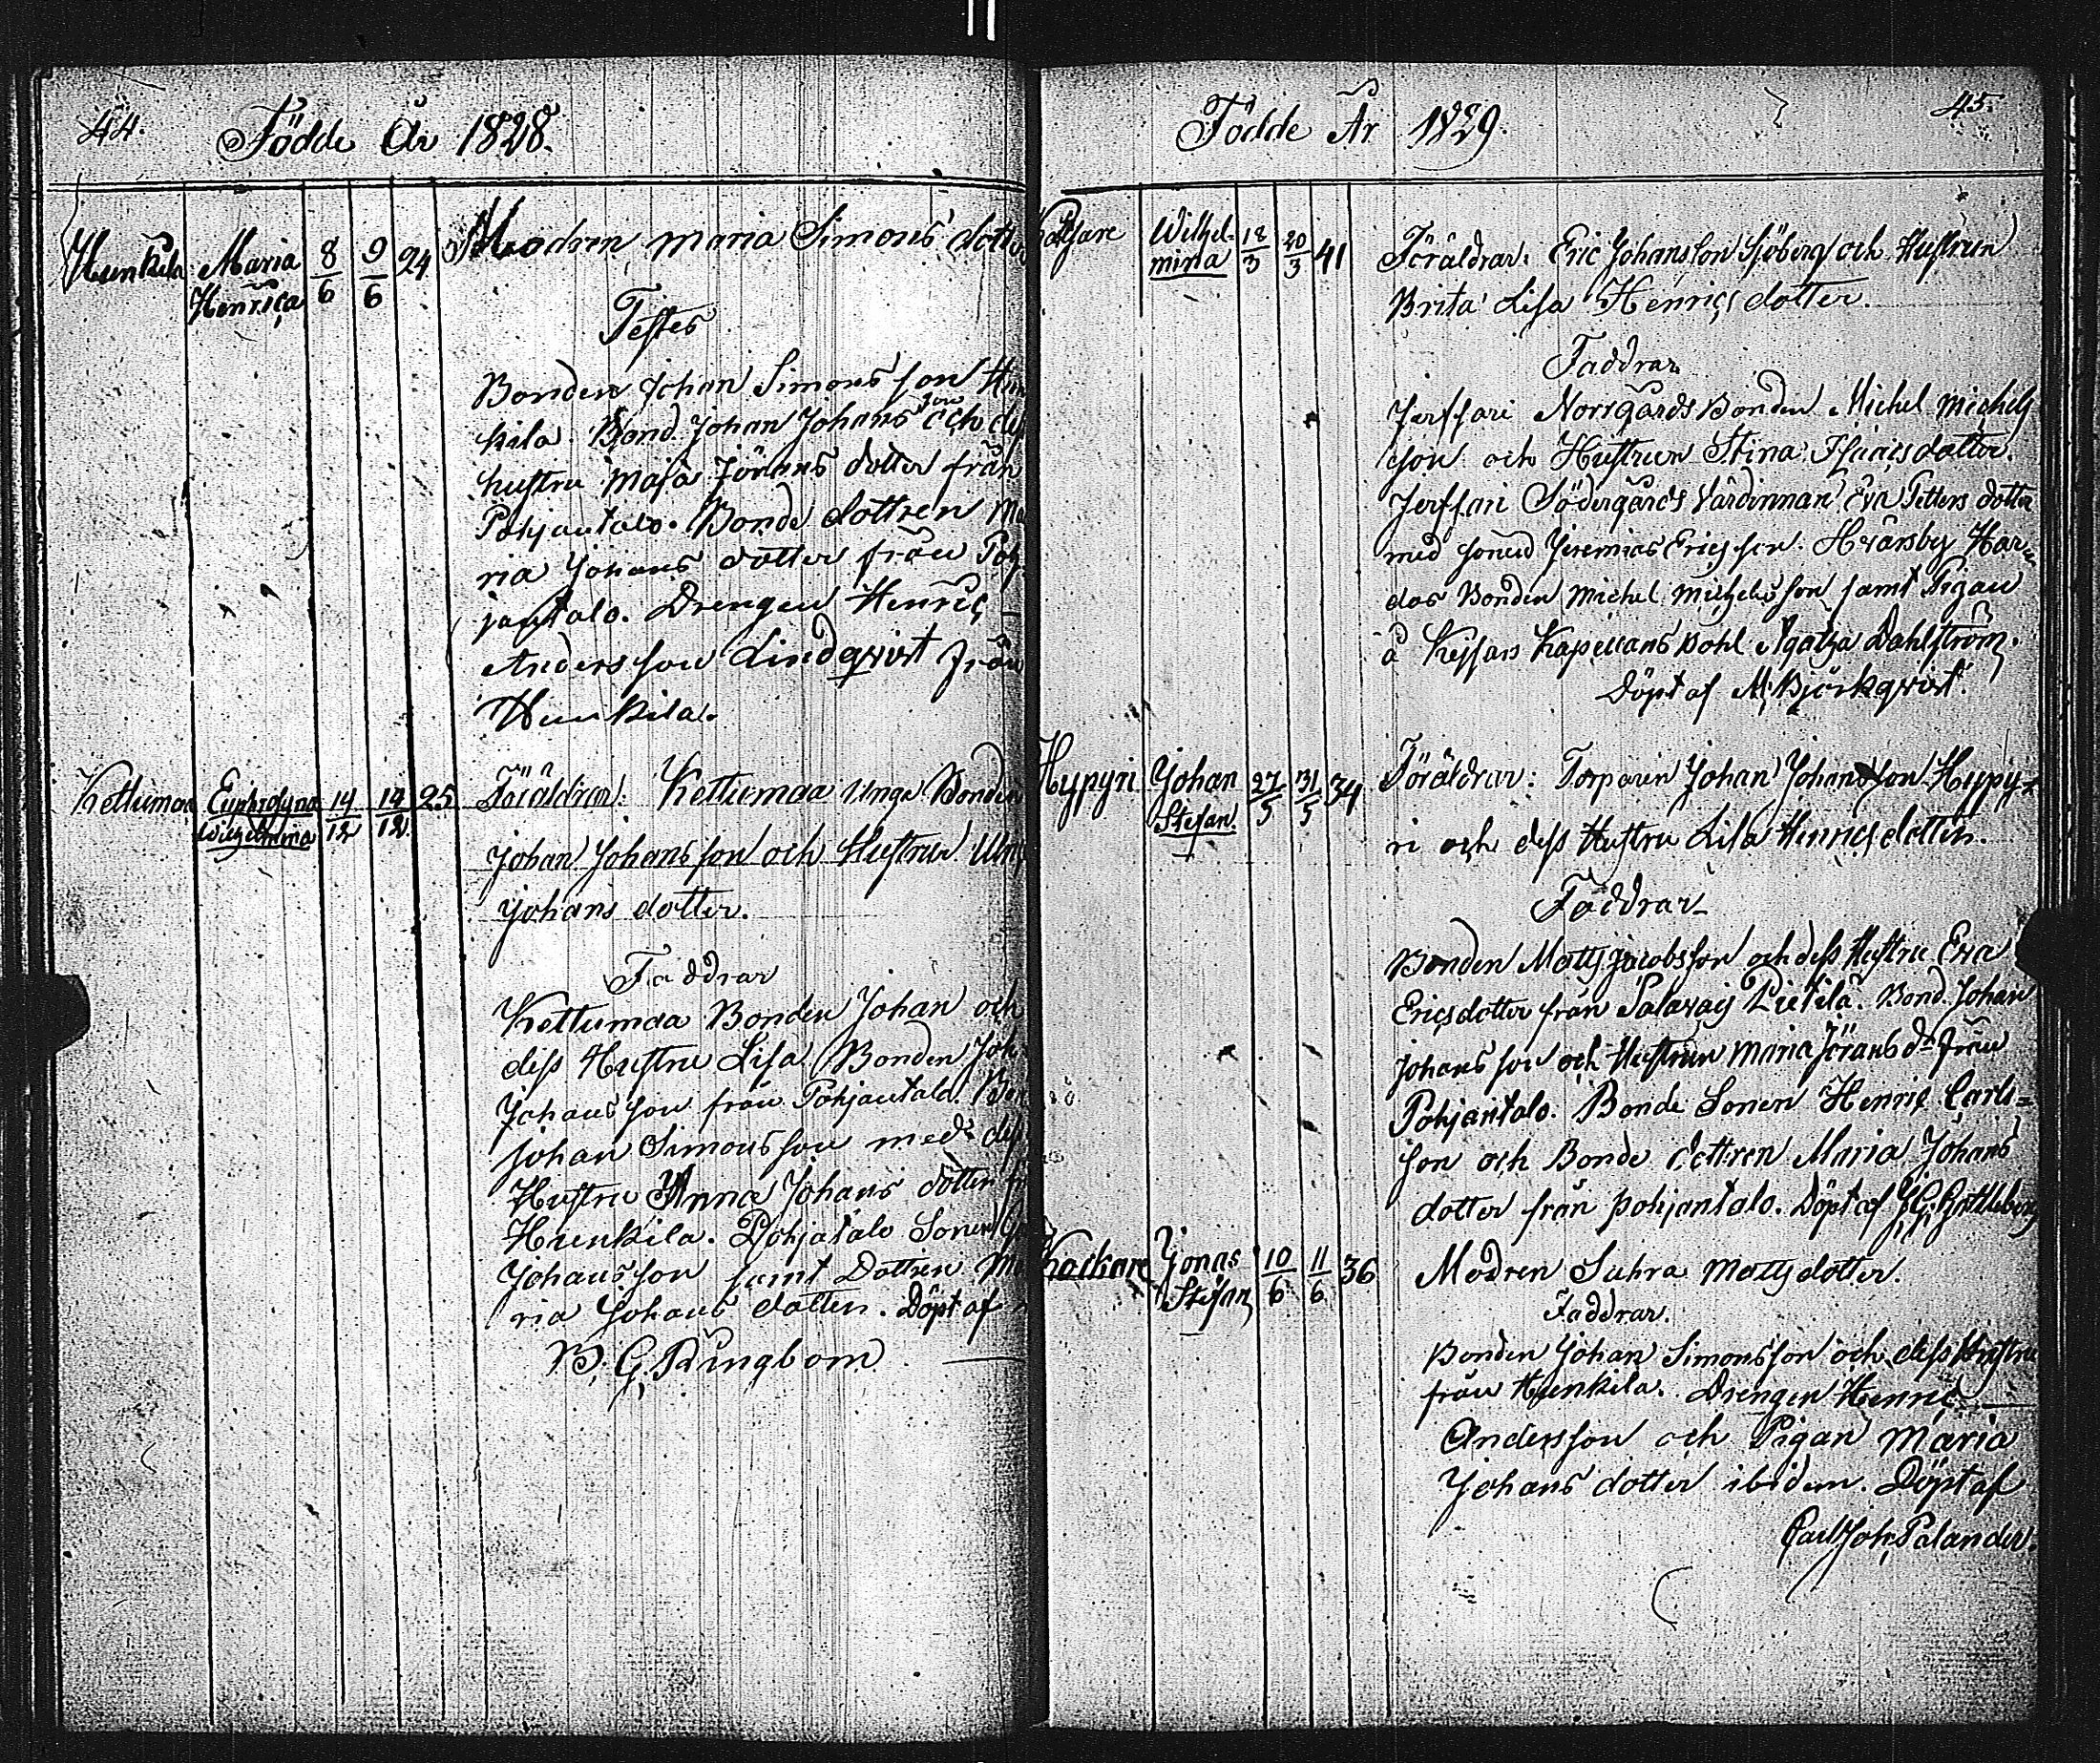 44.
Födde År 1828.
Hunkila
Maria
Henrica
8/6
9/6
24
Modren Maria Simons dotter
Testes
Bonden Johan Simons son Hun
kila. Bond. Johan Johans son och dess
hustru Maja Jörans dotter från
Pohjantalo. Bonde dottren Ma
ria Johans dotter från Poh
jantalo. Drengen Henric
Andersson Lindqvist från
Hunkila.
Kettumaa
Euphrosyna
Wilhelmina
14/12
19/12
25
Föräldrar: Kettumaa Unga Bonden
Johan Johansson och Hustrun Ulri
Johans dotter.
Faddrar
Kettumaa Bonden Johan och
dess Hustru Lisa Bonden Joh
Johansson från Pohjantalo. Bon
Johan Simonsson med dess
Hustru Anna Johans dotter fr
Hunkila. Pohjatalo Sonen
Johansson samt Dottren Ma
ria Johans dotter. Döpt af
B. G. Ringbom
45.
Födde År 1829.
Wilhel-
mina
18/3
20/3
41
Föräldrar: Eric Johansson Sjöberg och Hustrun
Brita Lisa Henrics dotter.
Faddrar
Jerffari Norrgårds Bonden Michel Michels
son och Hustrun Stina Isaacs dotter.
Jerffari Södergårds Värdinnan Eva Petters dotter
med sonen Jeremias Ericsson. Hvarsby Har-
das Bonden Michel Michelsson samt Pigan
å Kapellans Bohl Agatha Dahlström.
Döpt af M. Björkqvist.
Hypyri
Johan
Stefan.
27/5
31/5
34
Föräldrar: Torparen Johan Johansson Hypy-
ri och dess Hustru Lisa Henrics dotter.
Faddrar
Bonden Matts Jacobsson och dess Hustru Eva
Ericsdotter från Palavais Pietilä. Bond. Johan
Johansson och Hustrun Maria Jörans dr från
Pohjantalo. Bonde Sonen Henric Carls-
son och Bonde dottren Maria Johans
dotter från Pohjantalo. Döpt af
Jonas
Stefan
10/6
11/6
36
Modren Sahra Matts dotter.
Faddrar.
Bonden Johan Simonsson och dess Hustru
från Hunkila. Drengen Henric
Andersson och Pigan Maria
Johans dotter ibidem. Döpt af
Carl Joh. Palander.